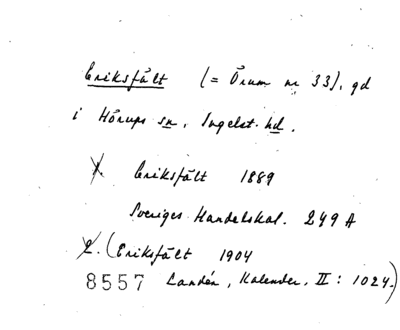 Eriksfält (= Örum nr 33), gd
i Hörups sn, Ingelst. hd.
1. Eriksfält 1889
Sveriges Handelskal. 249 A
2. (Eriksfält 1904
8557 Landén, Kalender, II: 1024.)